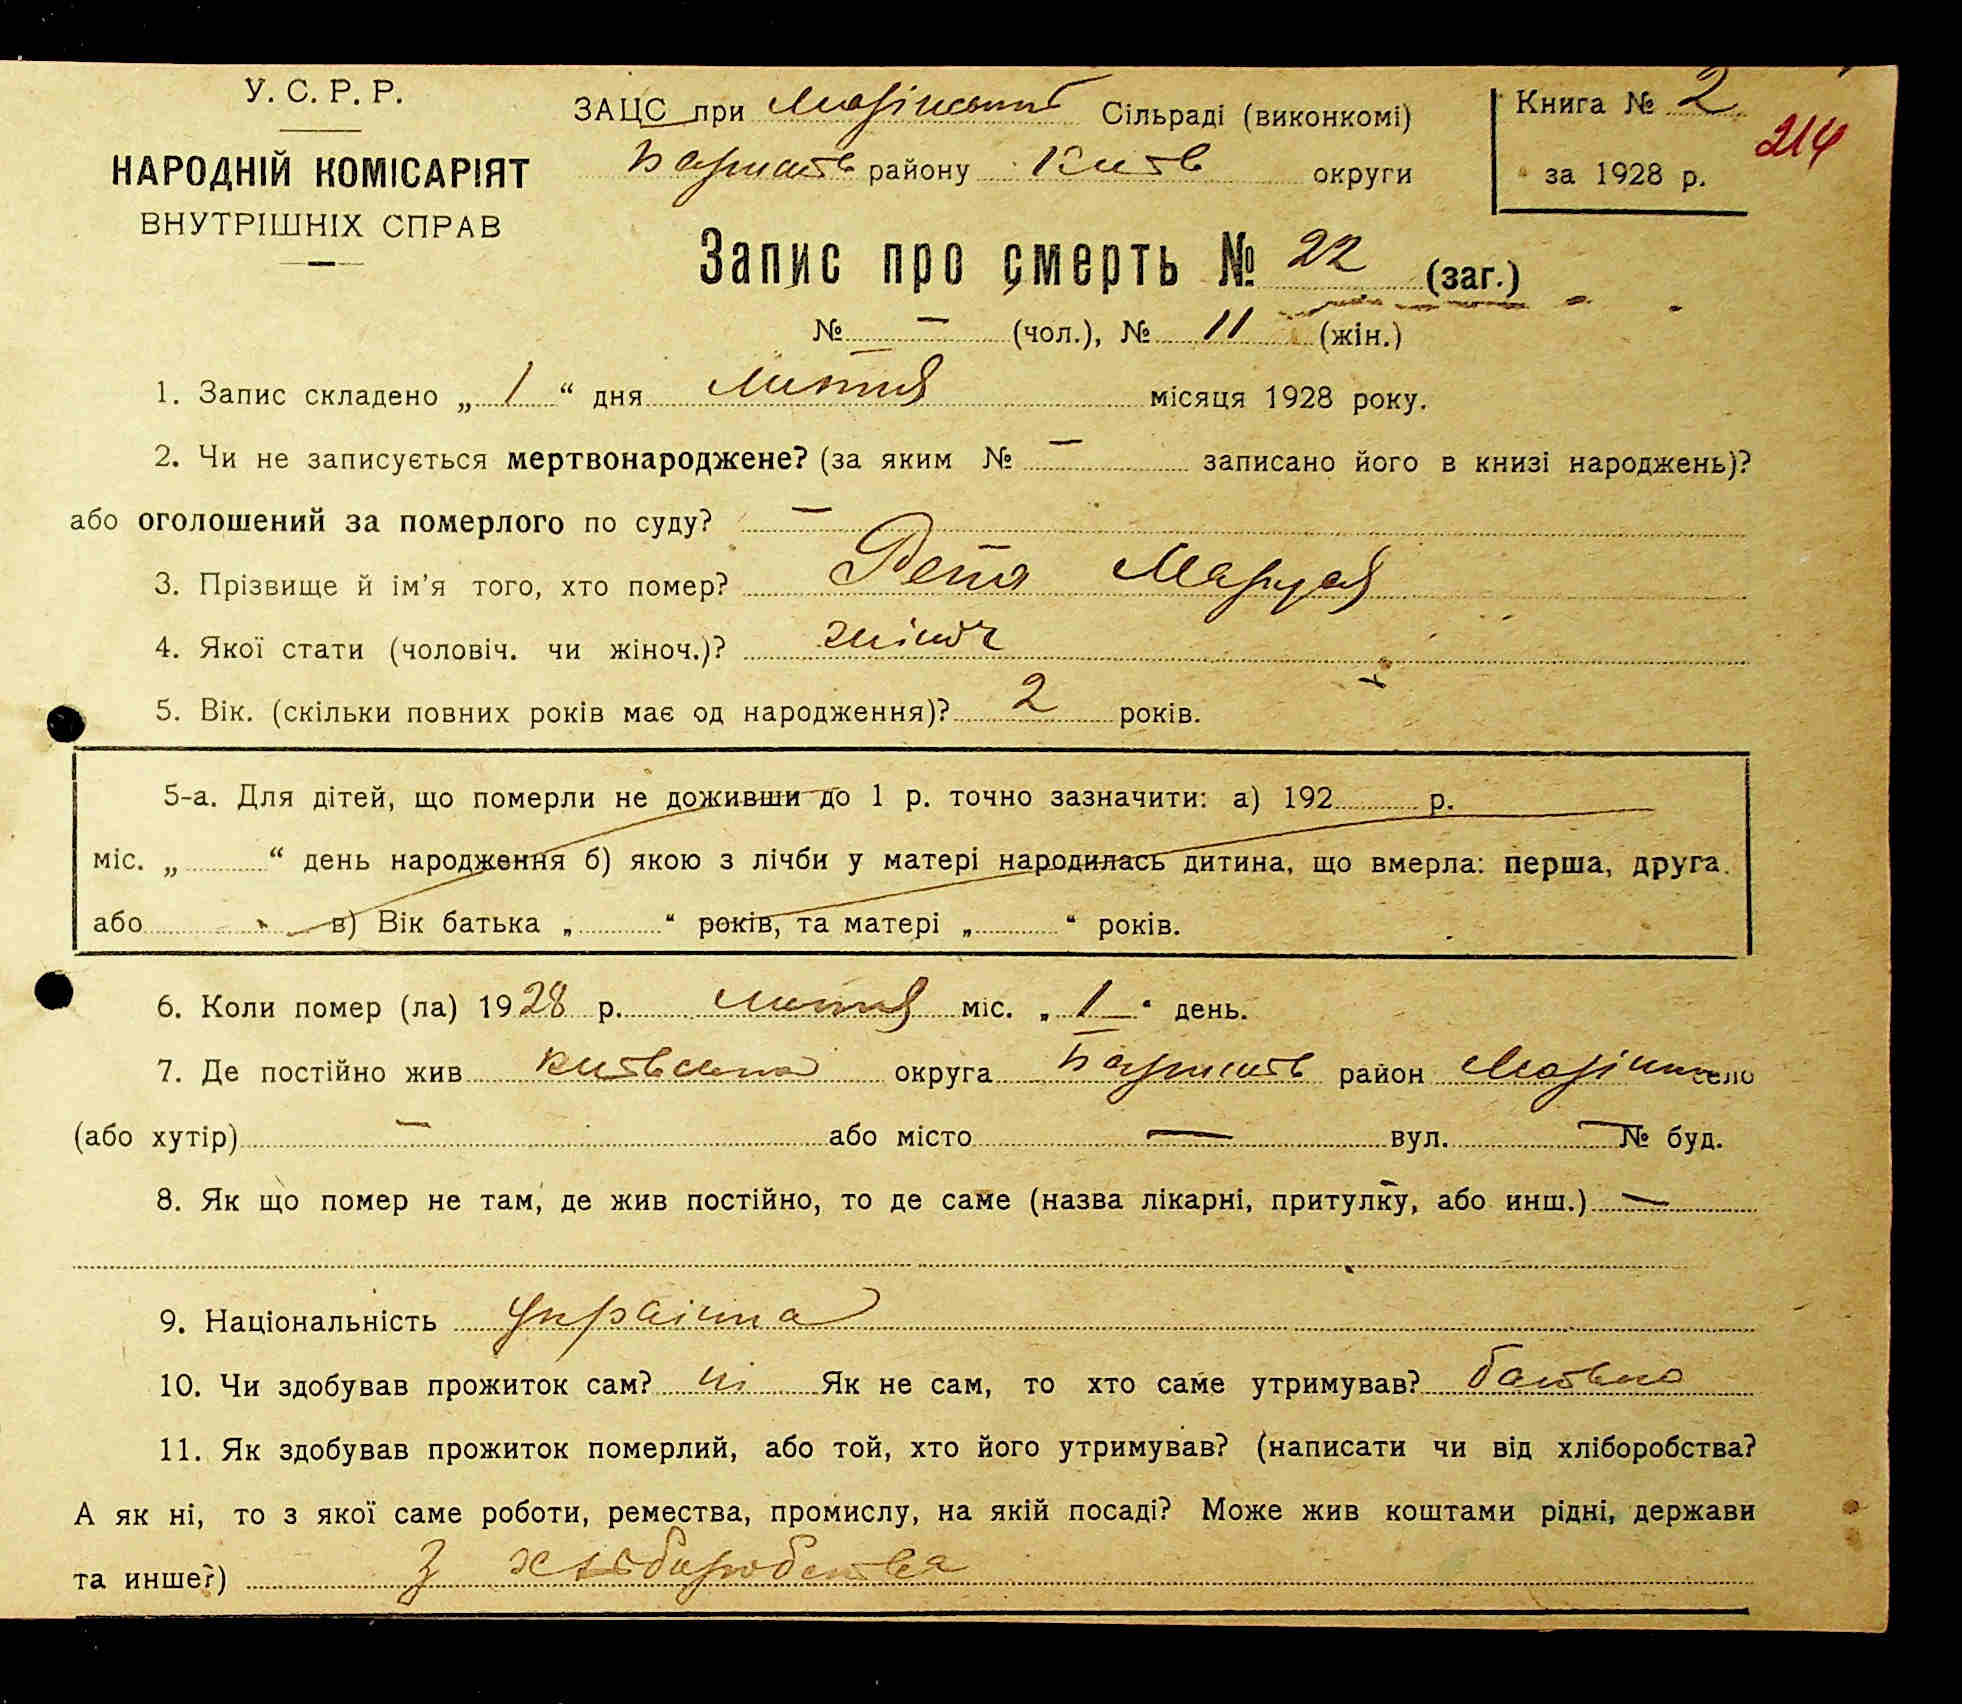 У. С. Р. Р.
НАРОДНІЙ КОМІСАРІЯТ
ВНУТРІШНІХ СПРАВ
ЗАЦС при Сільраді (виконкомі)
району Київ округи
Книга № 2
за 1928 р.
214
Запис про смерть № 22 (заг.)
№ — (чол.), № 11 (жін.)
1. Запис складено „ 1 “ дня липня місяця 1928 року.
2. Чи не записується мертвонароджене? (за яким № — записано його в книзі народжень)?
або оголошений за померлого по суду? —
3. Прізвище й ім’я того, хто помер? Репа
4. Якої стати (чоловіч. чи жіноч.)? жіноч
5. Вік. (скільки повних років має од народження)? 2 років.
5-а. Для дітей, що померли не доживши до 1 р. точно зазначити: а) 192 р.
міс. „ “ день народження б) якою з лічби у матері народилась дитина, що вмерла: перша, друга.
або в) Вік батька „ “ років, та матері „ “ років.
6. Коли помер (ла) 1928 р. липня міс. „ 1 “ день.
7. Де постійно жив київська округа район село
(або хутір) — або місто — вул. — № буд.
8. Як що помер не там, де жив постійно, то де саме (назва лікарні, притулку, або инш.) —
9. Національність українка
10. Чи здобував прожиток сам? ні Як не сам, то хто саме утримував? батько
11. Як здобував прожиток померлий, або той, хто його утримував? (написати чи від хліборобства?
А як ні, то з якої саме роботи, ремества, промислу, на якій посаді? Може жив коштами рідні, держави
та инше?) З хліборобства